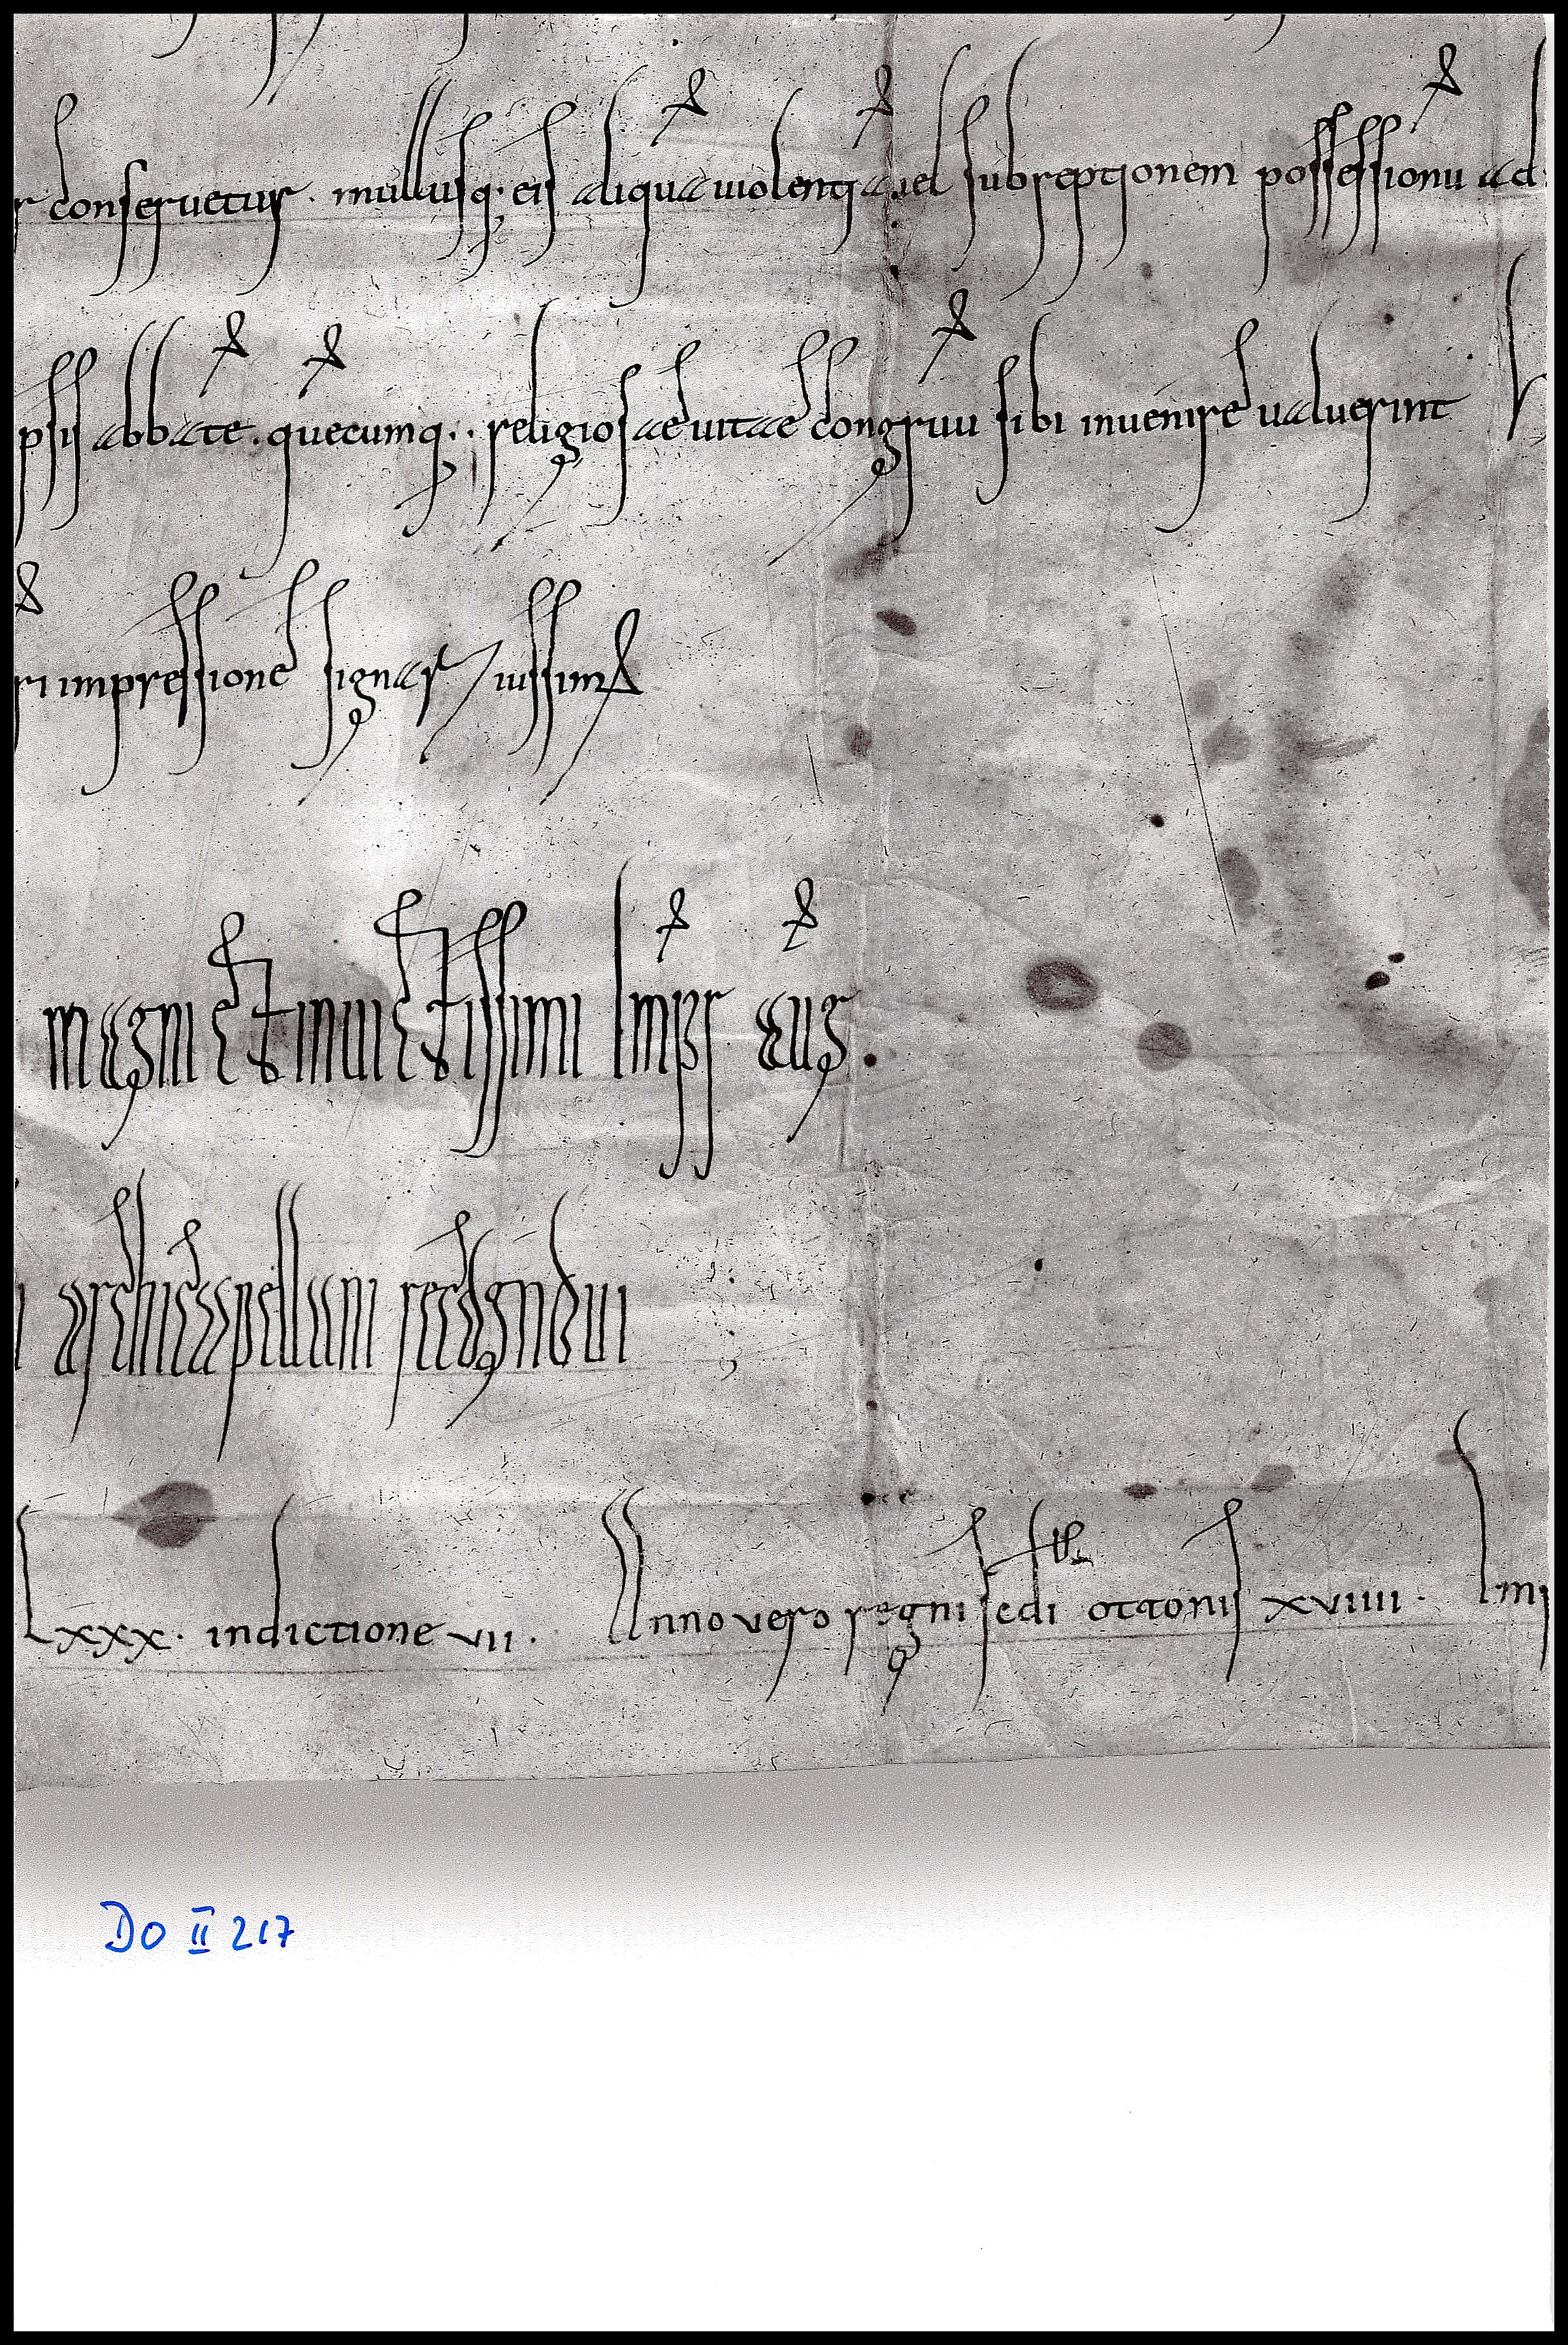 r conseruetur. nullusq; eis aliqua uiolentia uel subreptionem possessionu ad
ipsis abbate. quecumq; religiosae uitae congruu sibi inuenire ualuerint
ri impressione signari iussim
magni et inuictissimi impr aug.
archicapellani recognoui
Lxxx. indictione vii. Anno vero regni scdi ottonis xviiii. Imp
DO II 217